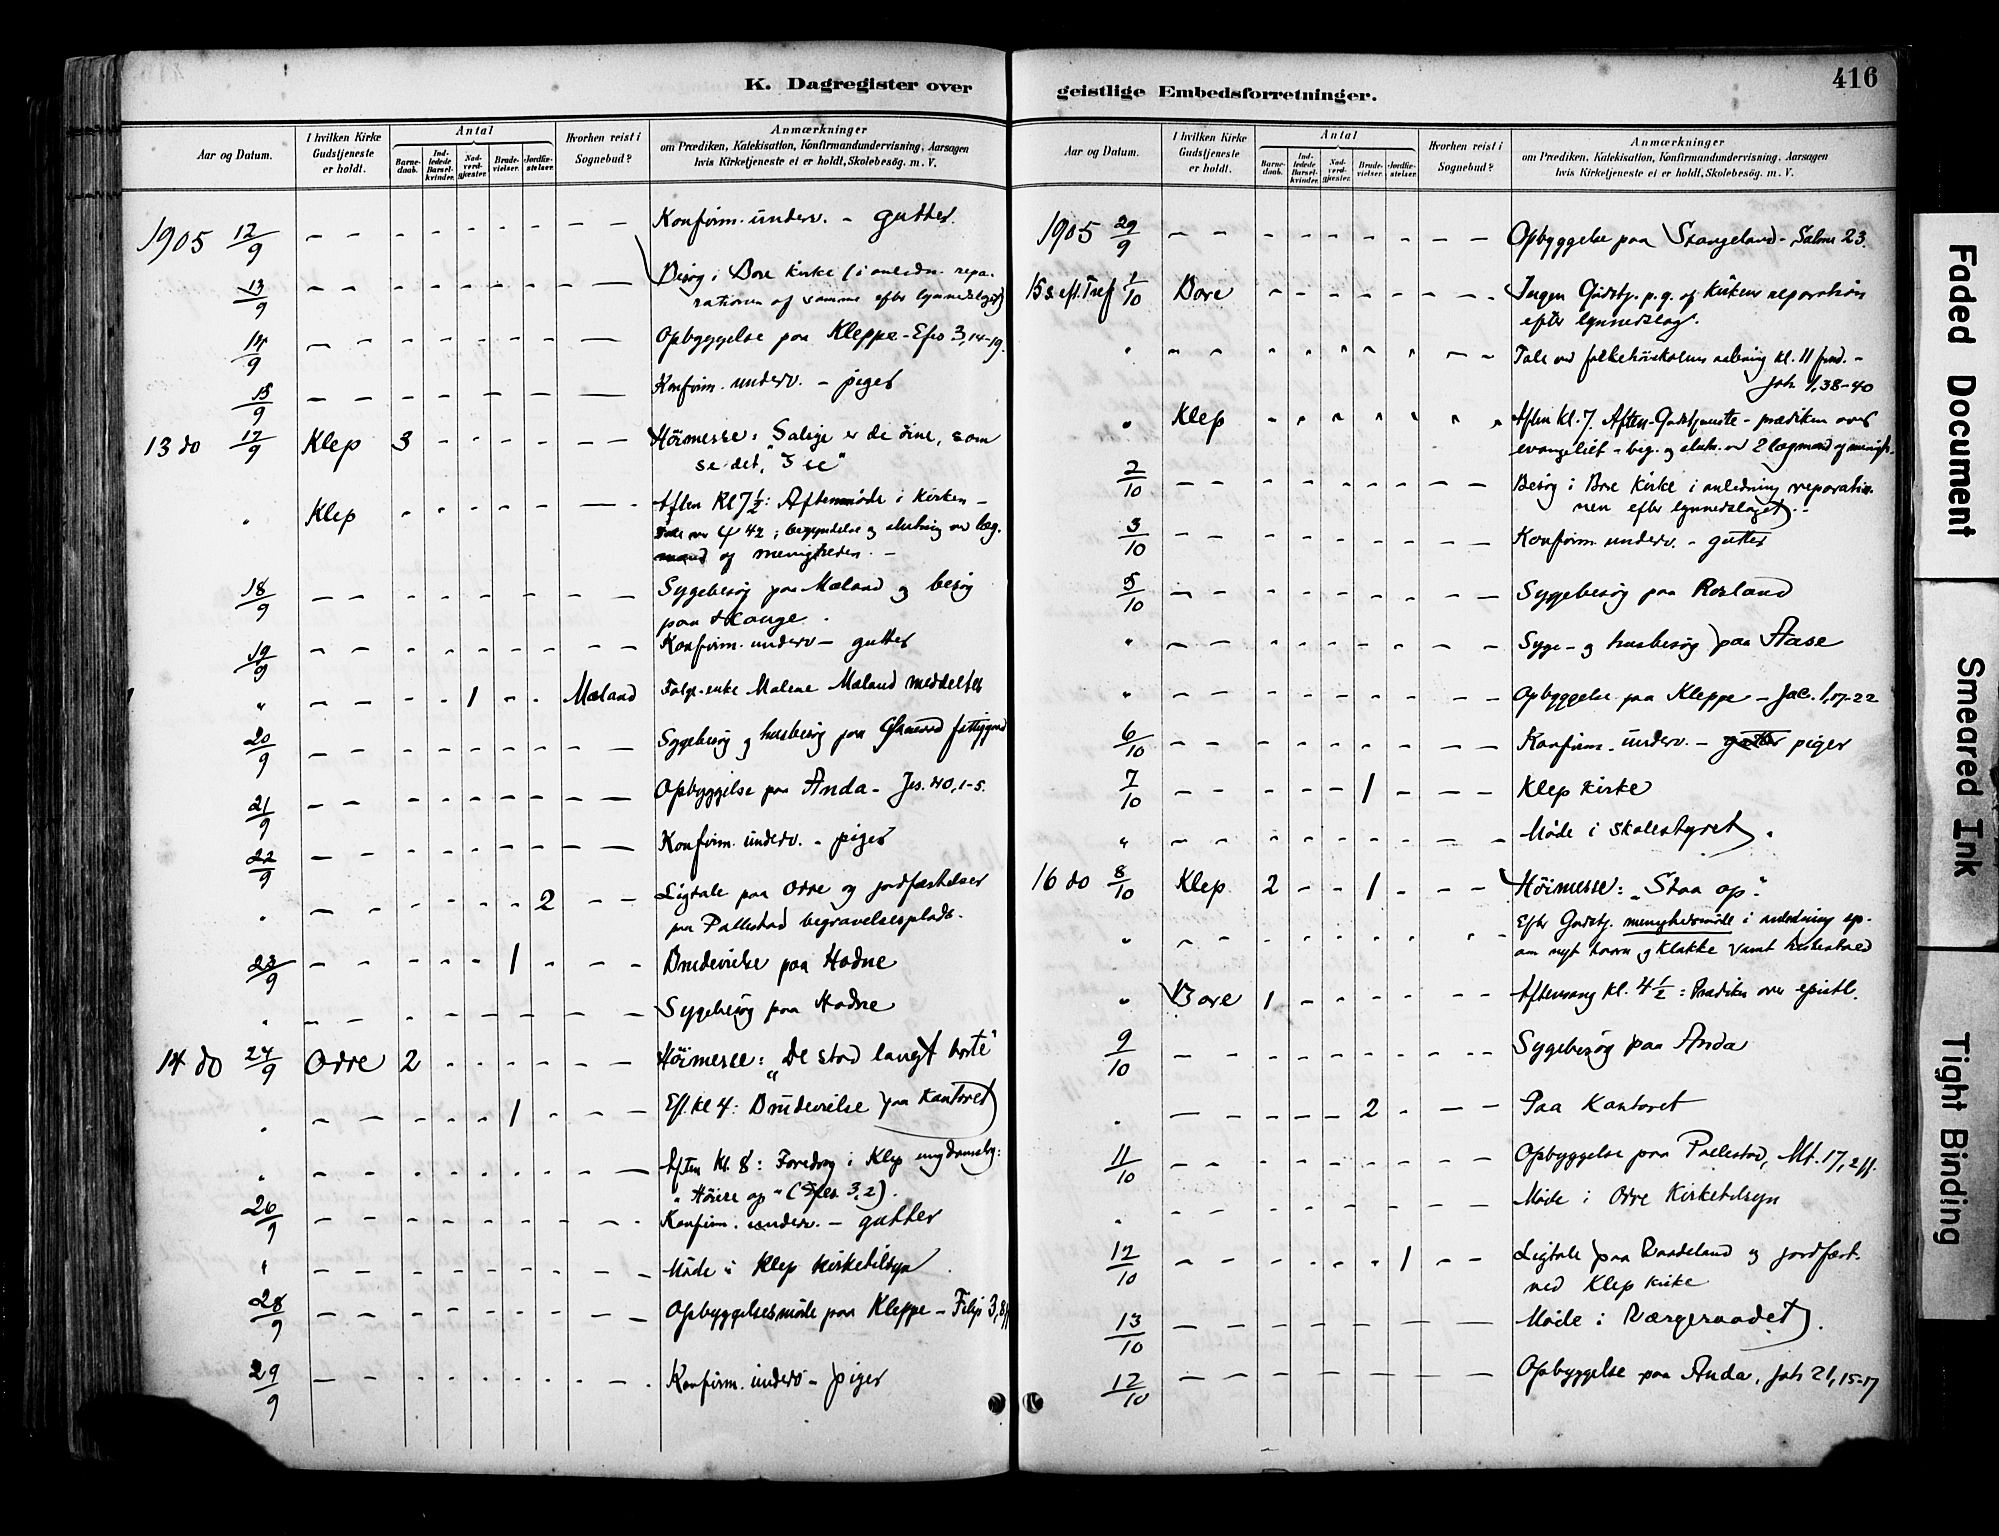 K. Dagregister over
geistlige Embedsforretninger.
416
Aar og Datum.
I hvilken Kirke Gudstjeneste er holdt.
Antal
Barne-daab.
Ind-ledede Barsel-kvinder.
Nad-verd-gjæster.
Brude-vielser.
Jordfæ-stelser.
Hvorhen reist i Sognebud?
Anmærkninger
om Prædiken, Katekisation, Konfirmandundervisning, Aarsagen
hvis Kirketjeneste ei er holdt, Skolebesög. m. V.
1905 12/9 Konfirm. underv. - gutter.
13/9 Besøg i Bore Kirke (i anledn. repa-
rationen af samme efter lynnedslaget)
14/9 Opbyggelse paa Kleppe - Efes 3,14-19.
15/9 Konfirm. underv. - piger
13 do 17/9 Klep 3 Høimesse: "Salige er de øine, som
se det, I se"
" Klep Aften Kl 7½: Aftenmøde i Kirken -
Tale over ψ 42; begyndelse og slutning ved læg-
mand og menigheden. -
18/9 Sygebesøg paa Mæland og besøg
paa
19/9 Konfirm. underv - gutter
" 1 Mæland Malene Mæland meddeltes
20/9 Sygebesøg og husbesøg paa
21/9 Opbyggelse paa Anda - Jes. 40,1-5.
22/9 Konfirm. underv. - piger
" 2 Ligtale paa Orre og jordfæstelser
paa Pallestad begravelsesplads.
23/9 1 Brudevielse paa Hodne
" Sygebesøg paa Hodne
14 do 24/9 Orre 2 Høimesse: "De stod langt borte"
" 1 Eft. Kl 4: Brudevielse paa Kantoret
" Aften Kl. 8: Foredrag i Klep ungdomslag:
"Høiere op" ( 3,2).
26/9 Konfirm. underv. - gutter
" Møde i Klep Kirketilsyn
28/9 Opbyggelsesmøde paa Kleppe - Filip 3,8ff
29/9 Konfirm. underv - piger
Aar og Datum.
I hvilken Kirke Gudstjeneste er holdt.
Antal
Barne-daab.
Ind-ledede Barsel-kvinder.
Nad-verd-gjæster.
Brude-vielser.
Jordfæ-stelser.
Hvorhen reist i Sognebud?
Anmærkninger
om Prædiken, Katekisation, Konfirmandundervisning, Aarsagen
hvis Kirketjeneste ei er holdt, Skolebesög. m. V.
1905 29/9 Opbyggelse paa Stangeland - Salme 23.
15 s. eft. Tref 1/10 Bore Ingen Gudstj. p.g. af Kirkens reparation
efter lynnedslag.
" Tale ved folkehøiskolens aabning kl. 11 fmd. -
Joh 1,38-40
" Klep Aften Kl. 7. Aften-Gudstjeneste - prædiken over
evangeliet - beg. og slutn. ved 2 lægmænd og menigh.
2/10 Besøg i Bore Kirke i anledning reparatio-
nen efter lynnedslaget.
3/10 Konfirm. underv. - gutter
5/10 Sygebesøg paa Rosland
" Syge- og husbesøg paa Aase
" Opbyggelse paa Kleppe - Jac. 1,17-22
6/10 Konfirm. underv. - gutter piger
7/10 1 Klep Kirke
" Møde i skolestyret.
16 do 8/10 Klep 2 1 Høimesse: "Staa op".
" Efter Gudstj. menighedsmøde i anledning sp.
om nyt taarn og Klokke samt
" Bore 1 Aftensang Kl. 4½: Prædiken over epistl.
9/10 Sygebesøg paa Anda
" 2 Paa Kantoret
11/10 Opbyggelse paa Pallestad, Mt. 17,2ff.
" Møde i Orre Kirketilsyn
12/10 1 Ligtale paa Braadeland og jordfæst.
ved Klep Kirke
13/10 Møde i Værgeraadet.
12/10 Opbyggelse paa Anda, Joh 21,15-17
Faded Document
Smeared Ink
Tight Binding